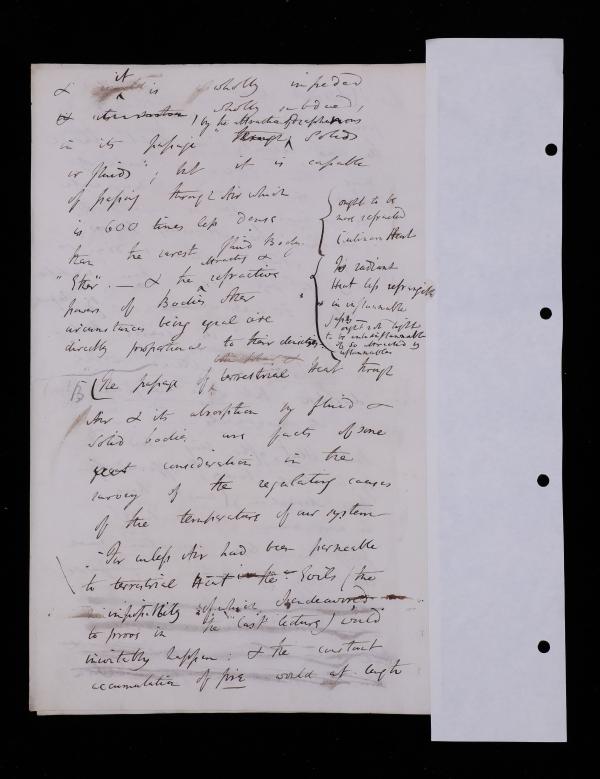 it
& is wholly impeded
& wholly subdued,
by the attraction of
in its passage "through Solids
or fluids"; but it is capable
of passing through Air which
is 600 times less dense
than the rarest fluid Body.
attractive &
"Ether". — & the refractive
powers of Bodies other
circumstances being equal are
directly proportional to their densities
ought to be
more refracted
Culinary Heat
Is radiant
Heat less refrangible
in inflammable
ought not light
to be
so attracted by
inflammables
B (The passage of terrestrial Heat through
Air & its absorption by fluid &
Solid bodies are facts of some
great consideration in the
survey of the regulating causes
of the temperature of our system
"For unless Air had been permeable
to terrestrial Heat the Evils (the
impossibility of which I endeavored
to prove in the "last" lecture) would
inevitably happen: & the constant
accumulation of fire would at length